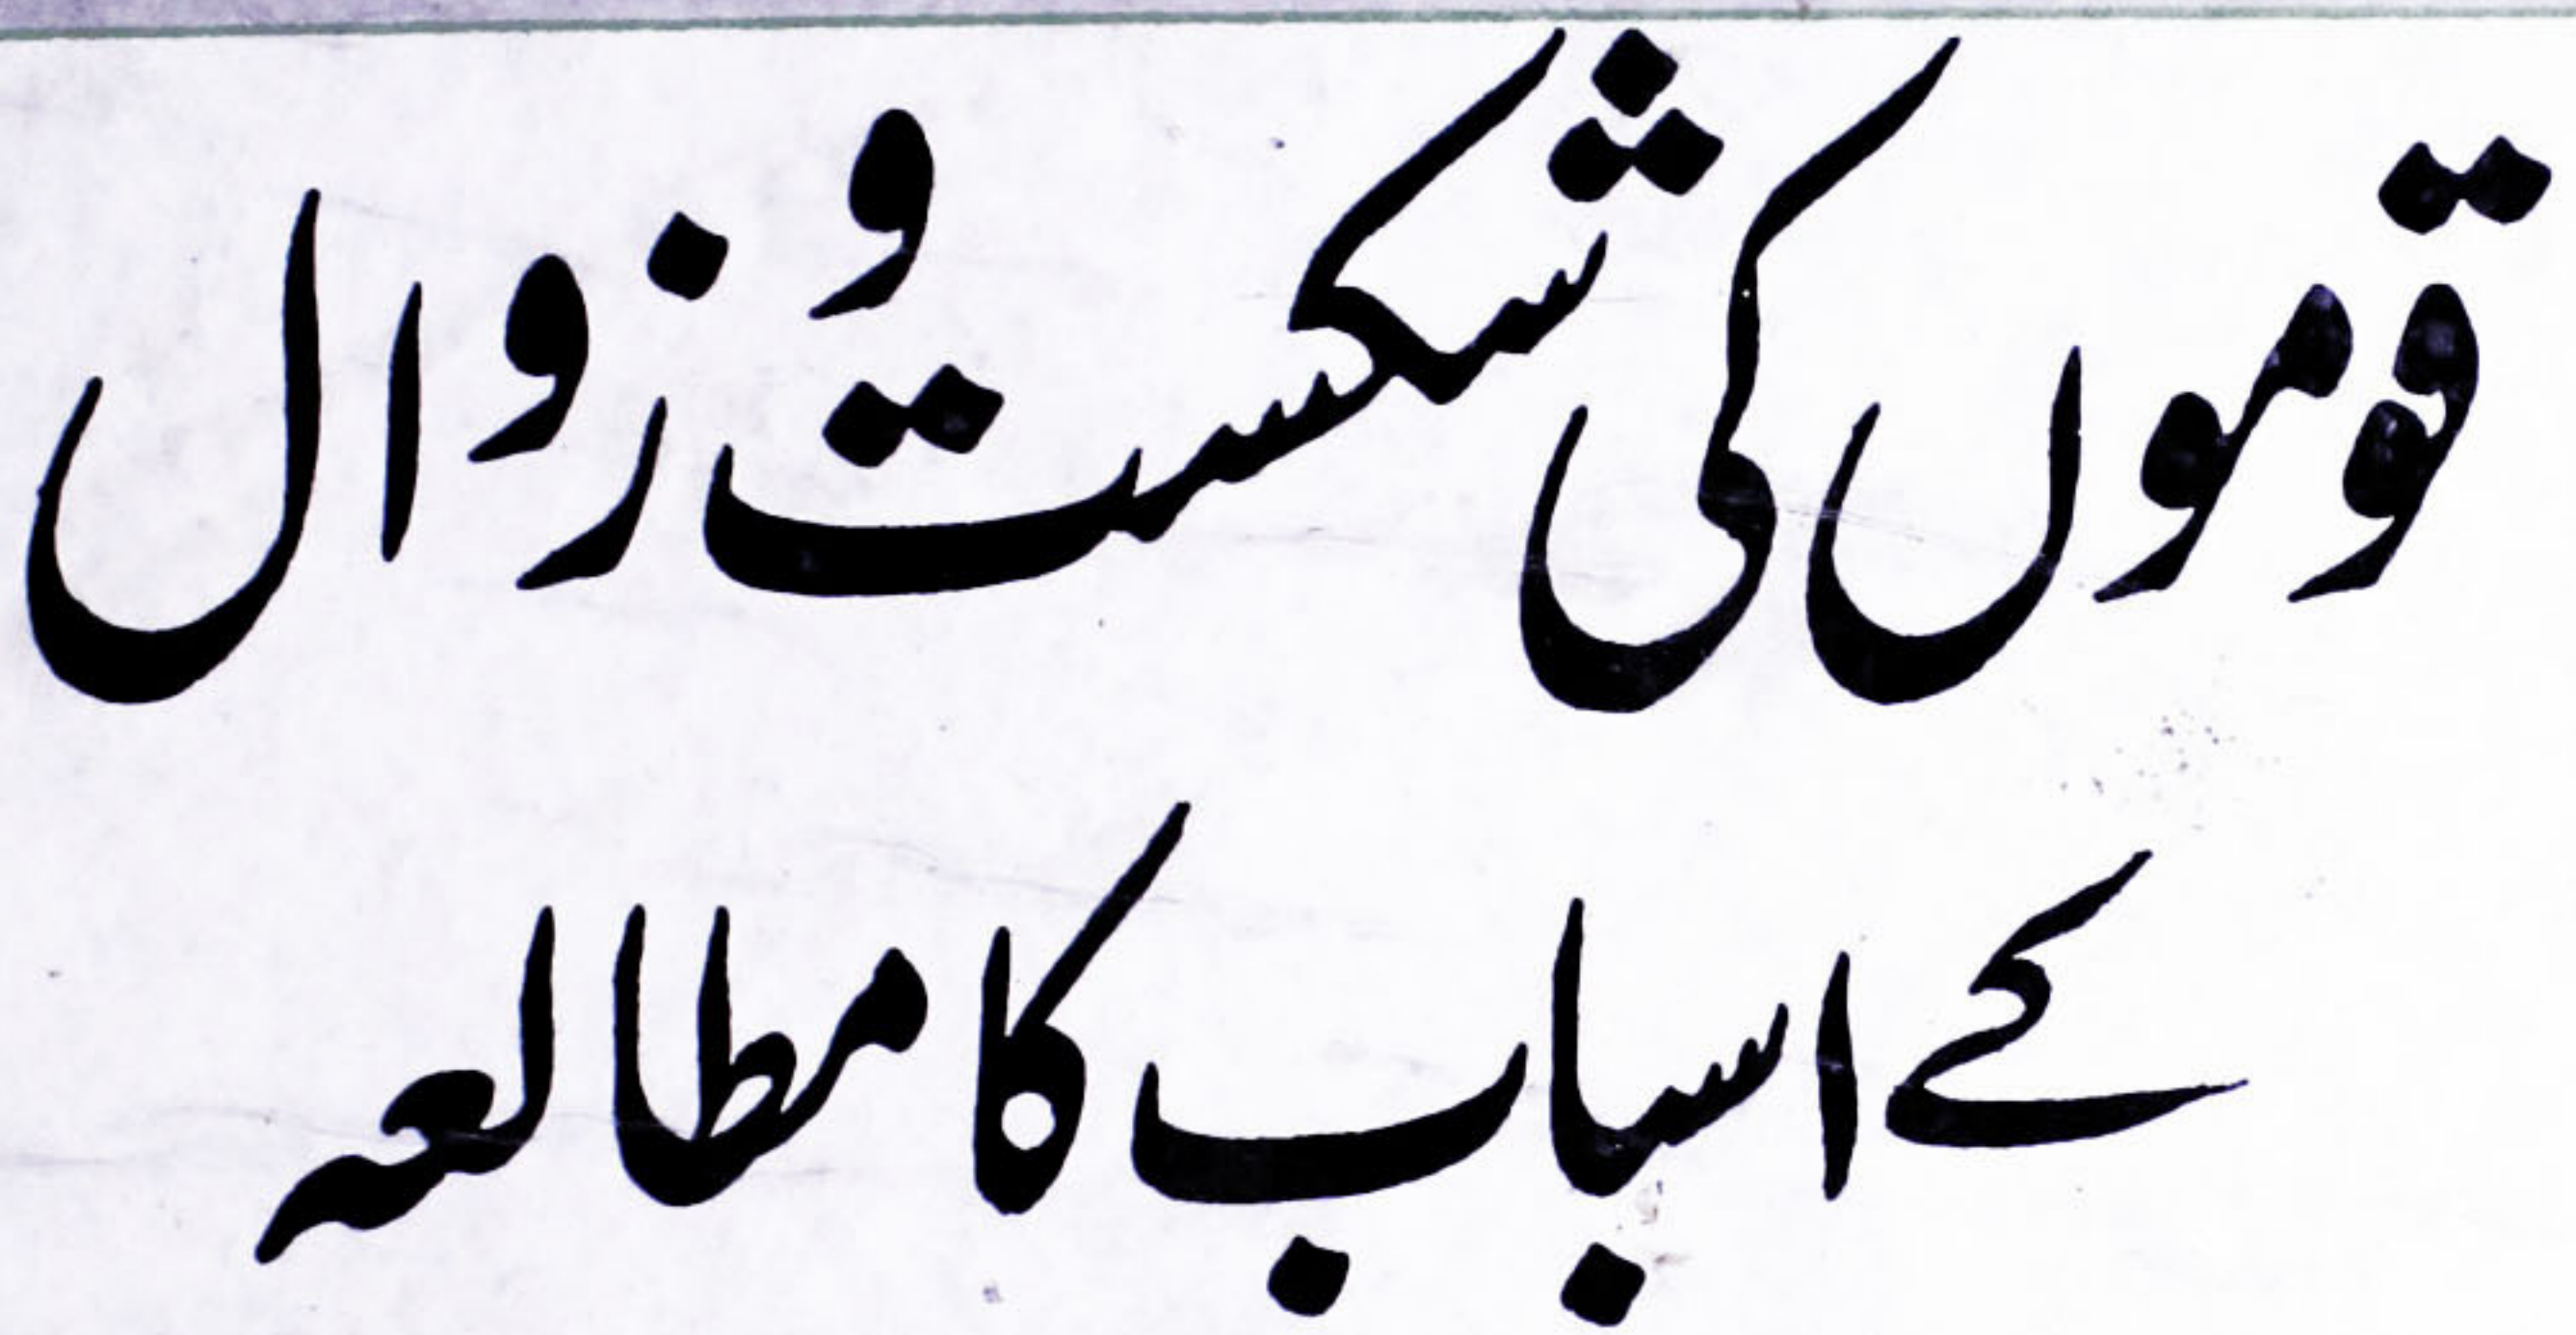 قوموں کی شکست و زوال
کے اسباب کا مطالعہ